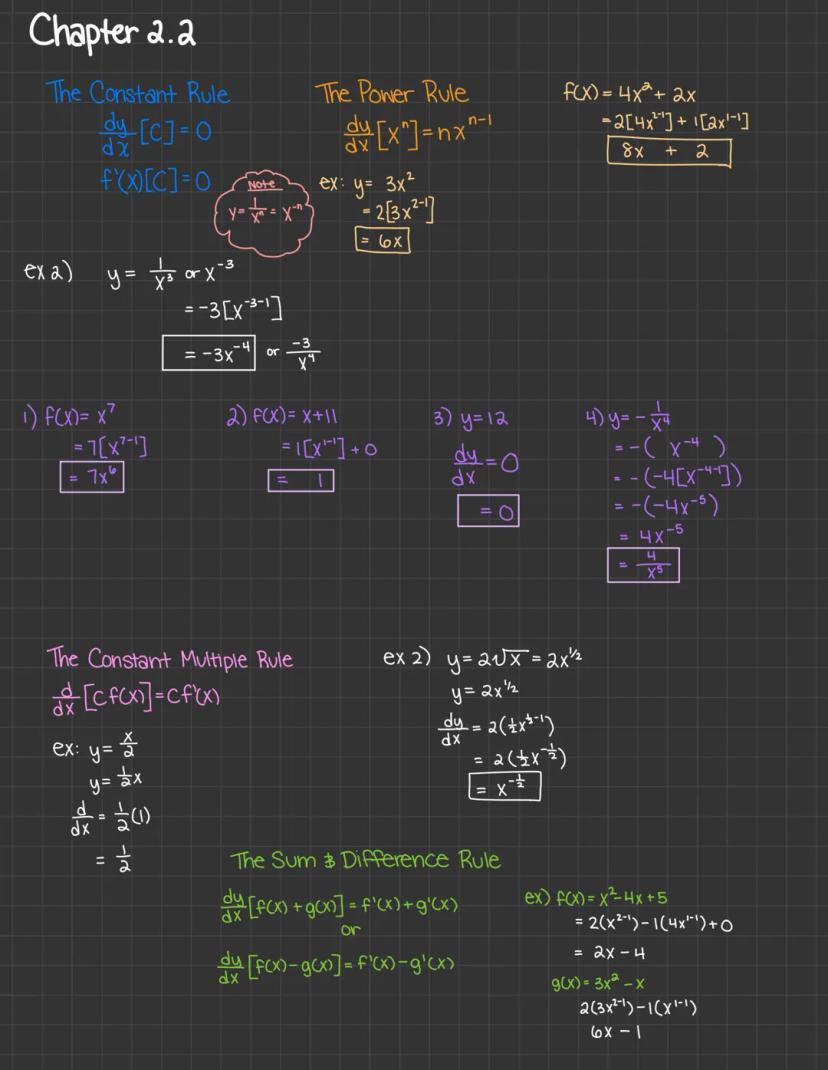 Chapter 2.2
The Constant Rule
dy/dx [C] = 0
f'(x)[C] = 0
Note
y = 1/xⁿ = x⁻ⁿ
The Power Rule
dy/dx [xⁿ] = nxⁿ⁻¹
ex: y = 3x²
= 2[3x²⁻¹]
= 6x
f(x) = 4x² + 2x
= 2[4x²⁻¹] + 1[2x¹⁻¹]
8x + 2
ex 2) y = 1/x³ or x⁻³
= -3[x⁻³⁻¹]
= -3x⁻⁴ or -3/x⁴
1) f(x) = x⁷
= 7[x⁷⁻¹]
= 7x⁶
2) f(x) = x + 11
= 1[x¹⁻¹] + 0
= 1
3) y = 12
dy/dx = 0
= 0
4) y = - 1/x⁴
= -( x⁻⁴ )
= -(-4[x⁻⁴⁻¹])
= -(-4x⁻⁵)
= 4x⁻⁵
= 4/x⁵
The Constant Multiple Rule
d/dx [Cf(x)] = Cf'(x)
ex: y = x/2
y = ½x
d/dx = ½(1)
= ½
ex 2) y = 2√x = 2x^½
y = 2x^½
dy/dx = 2(½x^(½-1))
= 2(½x^(-½))
= x^(-½)
The Sum & Difference Rule
dy/dx [f(x) + g(x)] = f'(x) + g'(x)
or
dy/dx [f(x) - g(x)] = f'(x) - g'(x)
ex) f(x) = x² - 4x + 5
= 2(x²⁻¹) - 1(4x¹⁻¹) + 0
= 2x - 4
g(x) = 3x² - x
2(3x²⁻¹) - 1(x¹⁻¹)
6x - 1